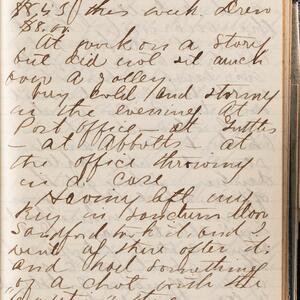 $8.45) this week. Drew
$8.00.
At work on a story
but did not set much
over a galley.
Very cold and stormy
in the evening. At
Post office - at Tuttles
- at Abbotts - at
the office throwing
in a case
Having left my
key in Sanctum door
Sandford took it and I
went up there after it.
and had something
of a chat with the